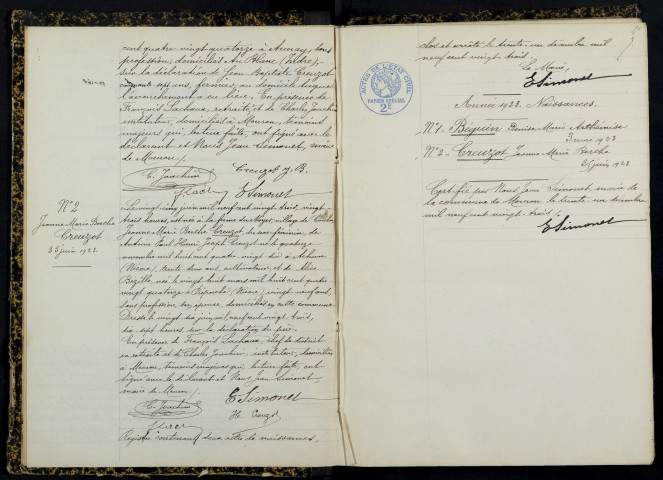 cent quatre-vingt quatorze à Aunay, sans
profession, domiciliés Au Blanc (Indre),-
sur la déclaration de Jean Baptiste Creuzot
cinquante sept ans, fermier, au domicile duquel
l'accouchement a eu lieu. En présence de
François Lachaux, retraité, et de Charles Joachim
instituteur, domiciliés à Mouron, témoins
majeurs qui, lecture faite, ont signé avec le
déclarant et Nous Jean Simonet, maire
de Mouron /.
C. Joachim Creuzot J. B.
ESimonet
N° 2
Jeanne Marie Berthe
Creuzot
25 juin 1923.
Le vingt cinq juin mil neuf cent vingt trois, vingt-
trois heures, est née à la ferme du Noyer, village de
Jeanne Marie Berthe Creuzot, du sexe féminin, de
Antoine Paul Henri Joseph Creuzot né le quatorze
novembre mil huit cent quatre vingt dix à Achun
(Nièvre), trente deux ans, cultivateur, et de Alice
née le vingt huit mars mil huit cent quatre
vingt quatorze à (Nièvre) vingt neuf ans,
sans profession, son épouse, domiciliés en cette commune
Dressé le vingt six juin, mil neuf cent vingt trois,
dix sept heures, sur la déclaration du père.
En présence de François Lachaux, chef de district
en retraite et de Charles Joachim, instituteur, domiciliés
à Mouron, témoins majeurs qui, lecture faite, ont
signé avec le déclarant et Nous Jean Simonet,
maire de Mouron /.
C. Joachim ESimonet
H. Creuzot
Registre contenant deux actes de naissances.
clos et arrêté le trente-un décembre mil
neuf cent vingt trois.
Le Maire,
ESimonet
ACTES DE L'ETAT CIVIL
PAPIER SPECIAL
2F
Année 1923. Naissances.
N° 1 - Béguin Denise Marie
1923
N° 2 - Creuzot Jeanne Marie Berthe
25 juin 1923.
Certifié par Nous Jean Simonet, maire de
la commune de Mouron le trente-un décembre
mil neuf cent vingt trois /.
ESimonet